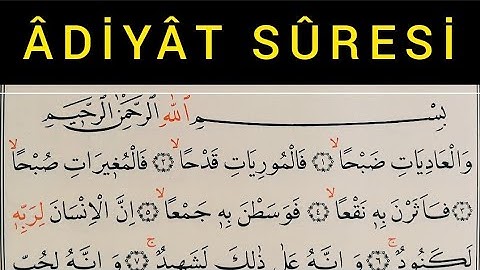 ÂDİYÂT SÛRESİ
بِسْمِ اللّٰهِ الرَّحْمٰنِ الرَّحِيمِ
وَالْعَادِيَاتِ ضَبْحًاۙ ﴿١﴾ فَالْمُورِيَاتِ قَدْحًاۙ ﴿٢﴾ فَالْمُغِيرَاتِ صُبْحًاۙ
﴿٣﴾ فَاَثَرْنَ بِهِ نَقْعًاۙ ﴿٤﴾ فَوَسَطْنَ بِهِ جَمْعًاۙ ﴿٥﴾ اِنَّ الْاِنْسَانَ لِرَبِّهِ
لَكَنُودٌۚ ﴿٦﴾ وَاِنَّهُ عَلٰى ذٰلِكَ لَشَهِيدٌۚ ﴿٧﴾ وَاِنَّهُ لِحُبِّ